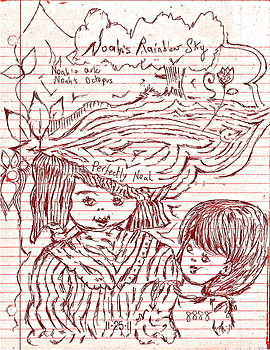 Noah's Rainbow Sky
Noah's ark
Noah's Octopus
Perfectly Noah
11-25-11
8888